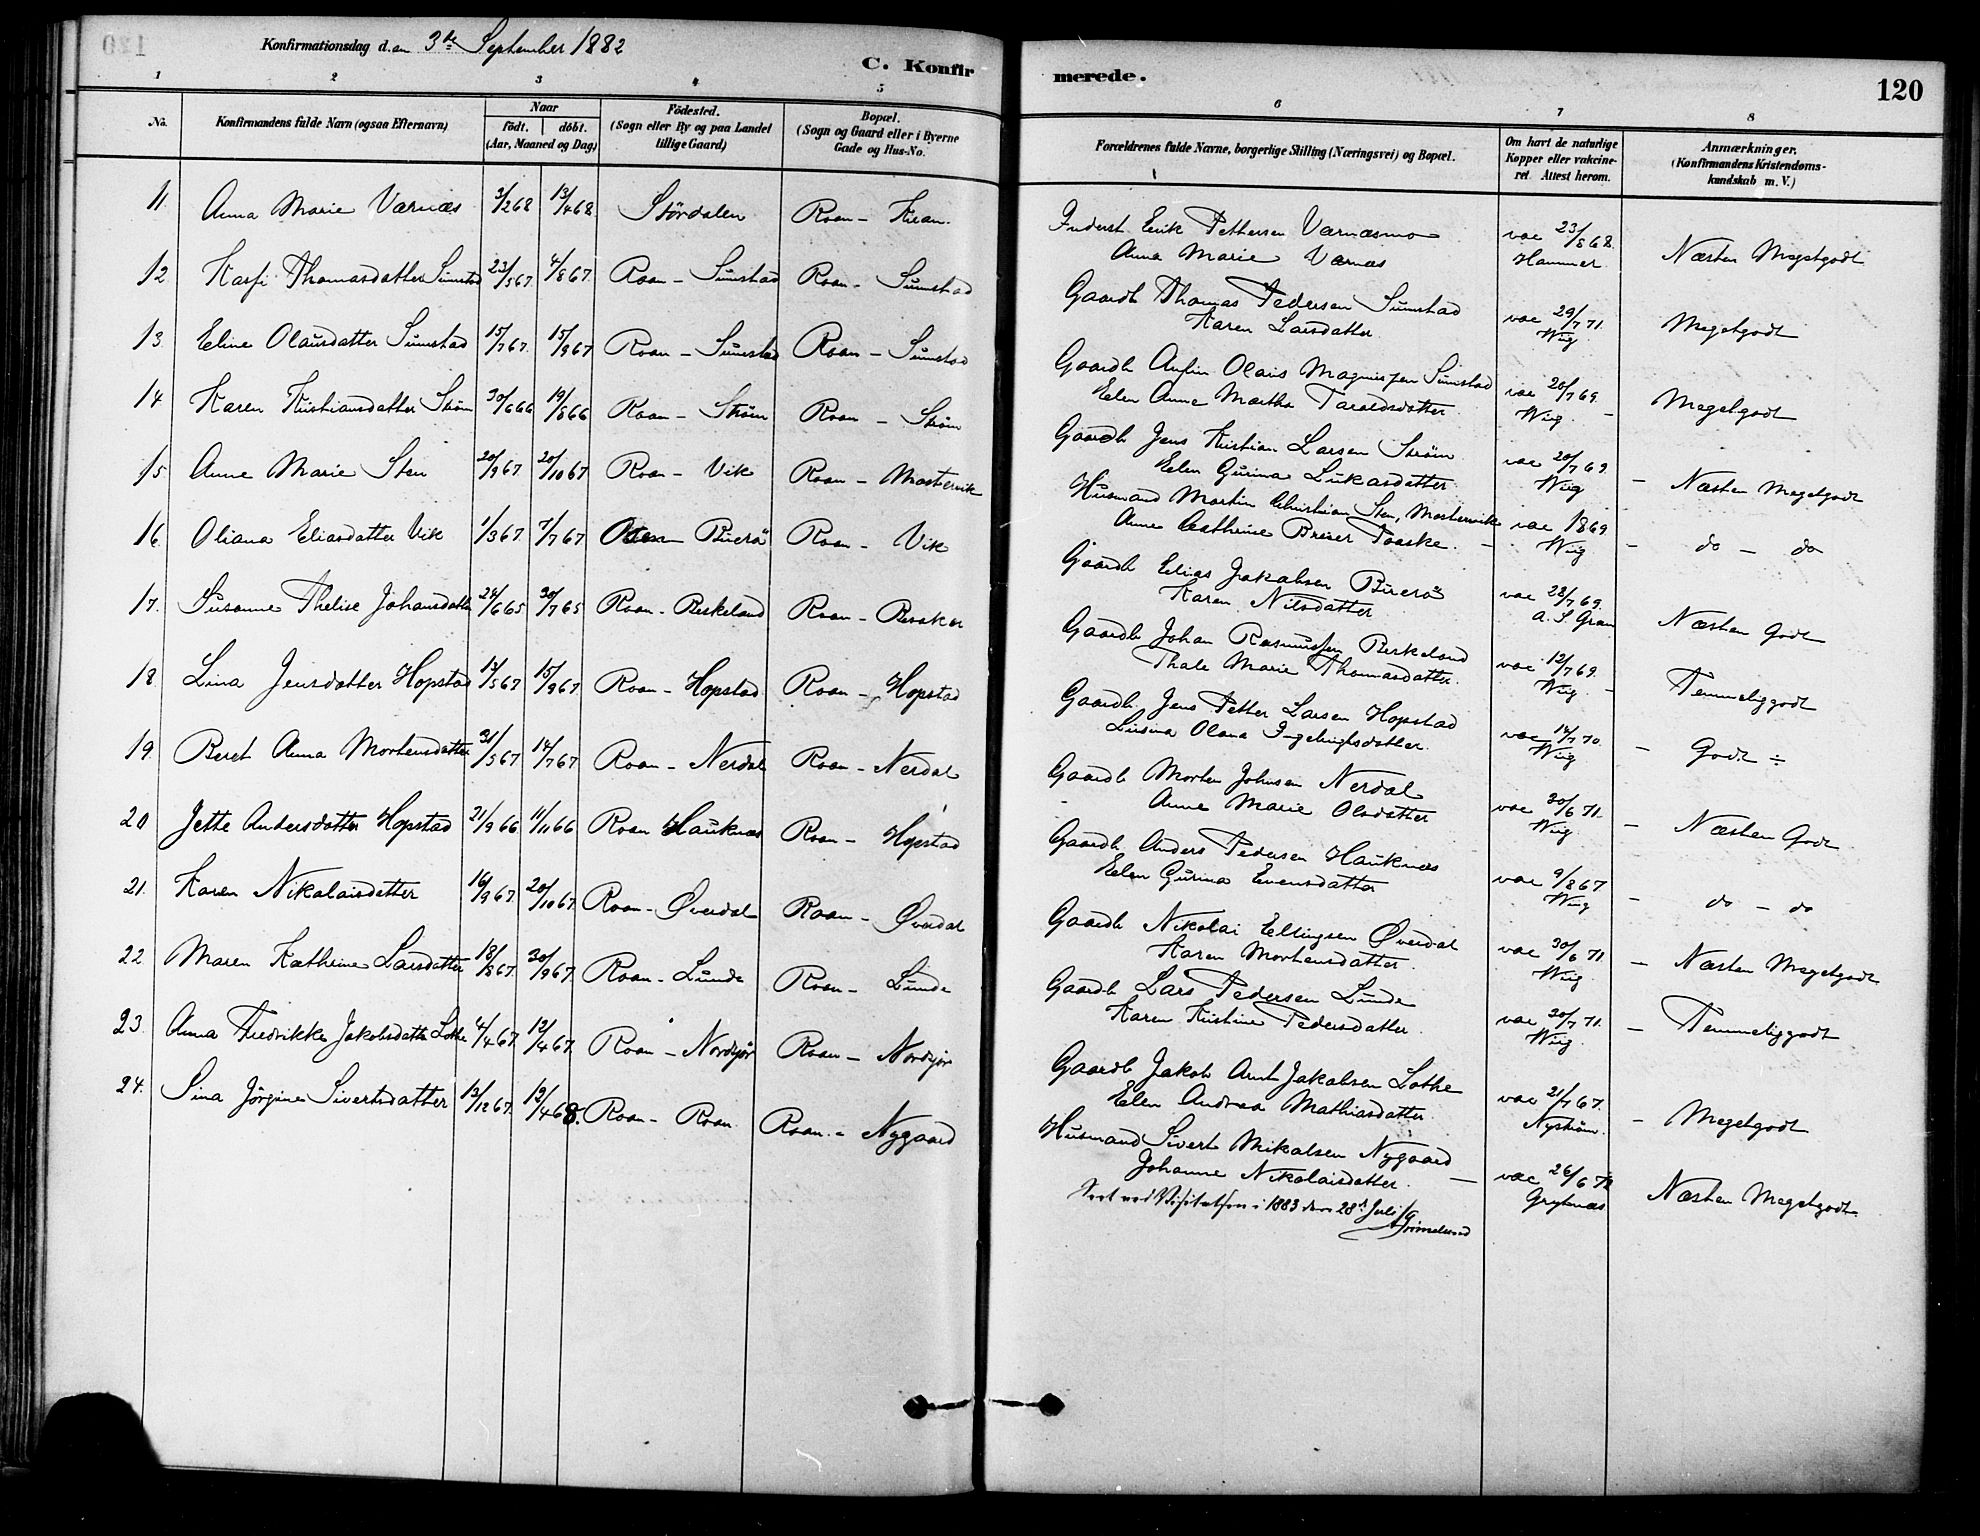 Konfirmationsdag den 3de September 1882
C. Konfir
merede.
120
1 2 3 4 5 6 7 8
No.
Konfirmandens fulde Navn (ogsaa Efternavn)
Naar
födt. döbt.
(Aar, Maaned og Dag)
Födested.
(Sogn eller By og paa Landet
tillige Gaard)
Bopæl.
(Sogn og Gaard eller i Byerne
Gade og Hus-No.
Forældrenes fulde Navne, borgerlige Stilling (Næringsvei) og Bopæl.
Om havt de naturlige
Kopper eller vakcine-
ret. Attest herom.
Anmærkninger.
(Konfirmandens Kristendoms-
kundskab m. V.)
11. Anna Marie Værnæs 3/2 68 13/4 68 Stördalen Roan - Kiran Inderst Erik Pettersen Værnæsmo vac 23/8 68. Næsten Megetgodt
Anna Marie Værnæs Hammer
12 Thomasdatter Sumstad 23/5 67. 4/8 67. Roan - Sumstad Roan - Sumstad Gaardb Thomas Pedersen Sumstad vac 29/7 71. Megetgodt
Karen Larsdatter Wiig
13. Eline Olausdatter Sumstad 15/7 67. 15/9 67 Roan - Sumstad Roan - Sumstad Gaardb Olaus Magnussen Sumstad vac 20/7 69. - Megetgodt
Elen Anne Martha Taraldsdatter Wiig
14 Karen Kristiansdatter Ström 30/6 66 19/8 66 Roan - Ström Roan - Ström Gaardb Jens Kristian Larsen Ström vac 20/7 69. - Næsten Megetgodt
Elen Gurina Lukasdatter Wiig
15 Anne Marie Sten 20/9 67 20/10 67 Roan - Vik Roan - Mastervik Husmand Martin Christian Sten, Mastervik vac 1869. - do - do
Anne Cathrine Breier Paaske. - Wiig
16. Oliana Eliasdatter Vik 1/3 67. 7/7 67 Buerö Roan - Vik Gaardb Elias Jakobsen Buerö vac 28/7 69. Næsten Godt
Karen Nilsdatter A. S Gran
17. Susanne Thelise Johansdatter 24/6 65 30/7 65 Roan - Beskeland Roan - Besaker Gaardb Johan Rasmussen Beskeland vac 12/7 69. - Temmeliggodt
Thale Marie Thomasdatter. Wiig
18. Lina Jensdatter Hopstad 14/5 67 15/9 67. Roan - Hopstad Roan - Hopstad Gaardb Jens Petter Larsen Hopstad vac 14/7 70. - Godt ÷
Olana Ingebrigtsdatter. Wiig
19. Beret Anna Mortensdatter 31/5 67 14/7 67 Roan - Nerdal Roan - Nerdal Gaardb Morten Johnsen Nerdal vac 30/6 71. - Næsten Godt
Anne Marie Olsdatter Wiig
20 Jette Andersdatter Hopstad 21/9 66 11/11 66 Roan Hauknæs Roan - Hopstad Gaardb Anders Pedersen Hauknæs vac 9/8 67 - do - do
Elen Gurina Evensdatter Wiig
21. Karen Nikolaisdatter 16/9 67. 20/10 67. Roan - Øverdal Roan - Øverdal Gaardb Nikolai Ellingsen Øverdal vac 30/6 71. - Næsten Megetgodt
Karen Mortensdatter. Wiig
22 Maren Kathrine Larsdatter 18/8 67. 30/9 67. Roan - Lunde Roan - Lunde Gaardb Lars Pedersen Lunde vac 20/7 71. - Temmeliggodt
Karen Kristine Pedersdatter. Wiig
23. Anna Fredrikke Jakobsdatter Lothe 4/4 67. 12/4 67. Roan - Nordsjör Roan - Nordsjör Gaardb Jakob Arnt Jakobsen Lothe vac 21/7 67. - Megetgodt
Elen Andrea Mathiasdatter Nyström.
24. Sina Jörgine Sivertsdatter 13/12 67. 13/4 68. Roan - Roan Roan. - Nygaard Husmand Sivert Mikalsen Nygaard vac 26/6 72 Næsten Megetgodt.
Johanne Nikolaisdatter. - Grytenæs
Seet ved Visitatsen i 1883 den 28de Juli